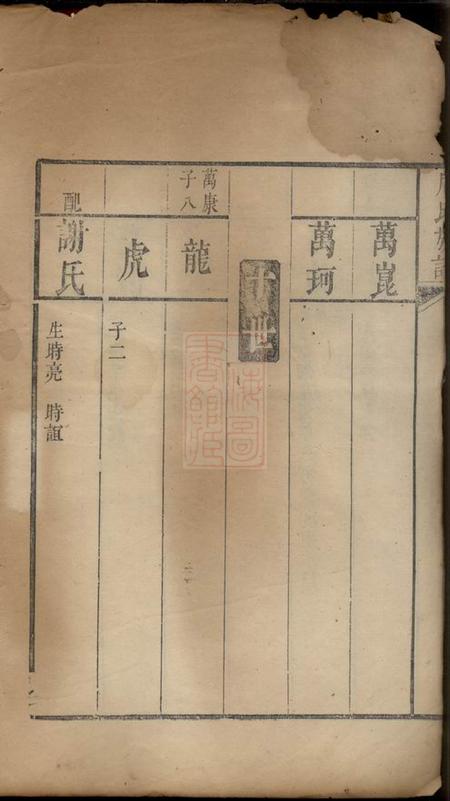 萬崑
萬珂
世
萬康
子八
龍
虎
子二
配
謝氏
生時亮 時誼